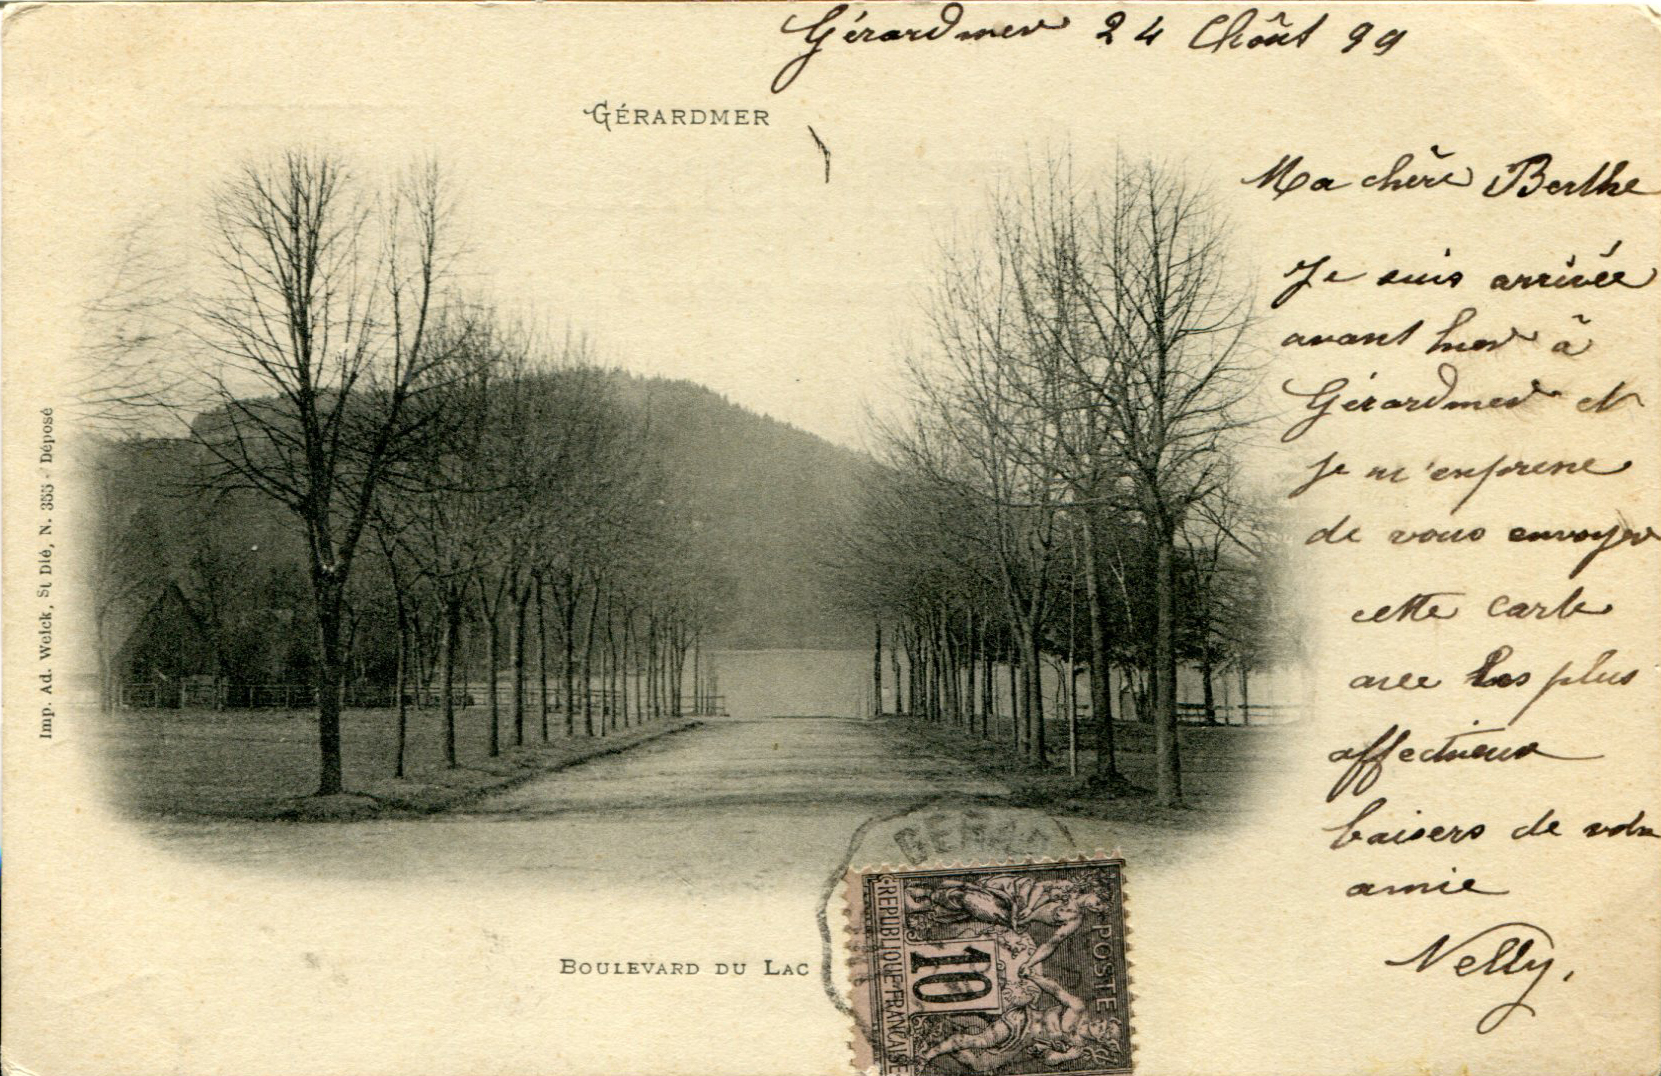 Gérardmer 24 Août 99
GÉRARDMER
Ma chère Berthe
Je suis arrivée
avant hier à
Gérardmer et
je m'emprese
de vous envoyer
cette carte
avec les plus
affectueux
baisers de votre
amie
Nelly.
Imp. Ad. Weick, St Dié, N. 355 - Déposé
BOULEVARD DU LAC
GÉRAR
POSTE
10
REPUBLIQUE FRANCAISE